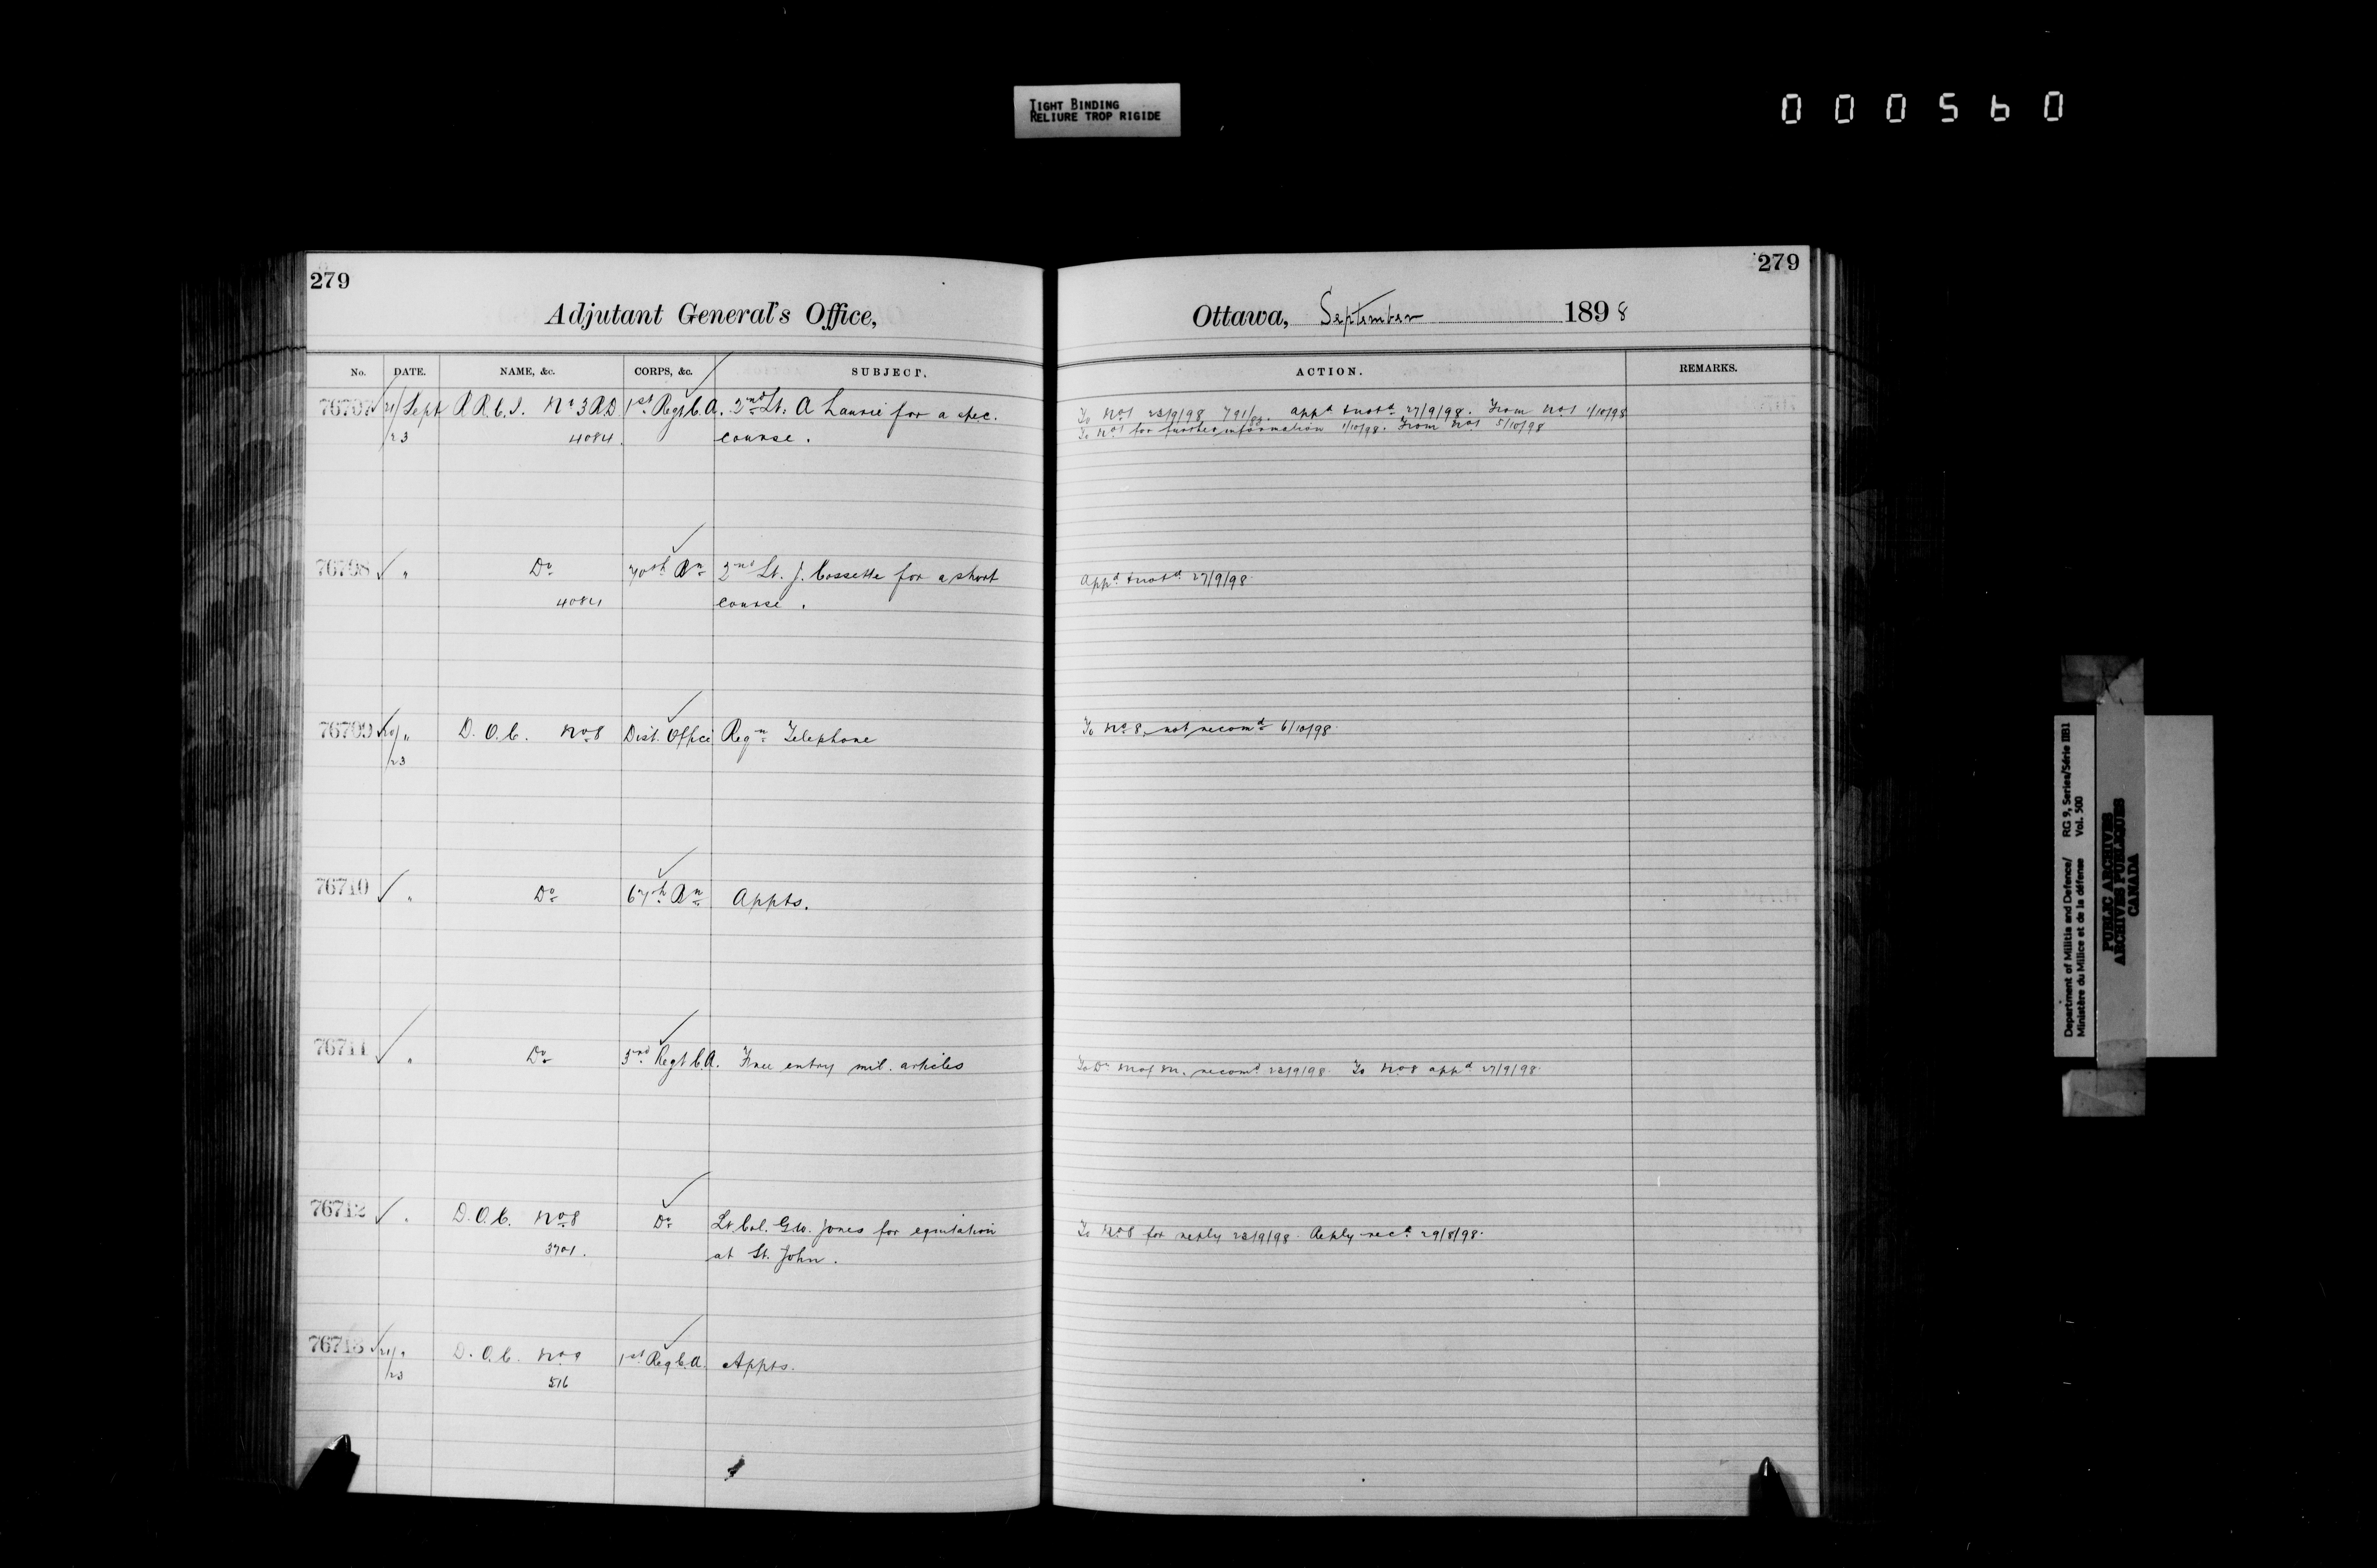 TIGHT BINDING
RELIURE TROP RIGIDE
000560
279
Adjutant General's Office,
No. DATE. NAME, &c. CORPS, &c. SUBJECT.
76707 21/Sept R.R.C.I. No 3 R.D 1st Regt C.A. 2nd Lt. A Laurie for a spec.
23 4084. course.
76708 " Do 70th Bn 2nd Lt. J. Cossette for a short
4084 course.
76709 20/ " D.O.C. No 8 Dist. Office Reqn Telephone
23
76710 " Do 67th Bn Appts.
76711 " Do 3rd Regt C.A. Free entry mil. articles
76712 " D.O.C. No 8 Do Lt Col. G.W. Jones for equitation
3701. at St. John.
76713 21/ " D.O.C. No 9 1st Reg C.A. Appts.
23 516
279
Ottawa, September 1898
ACTION. REMARKS.
To No 1 23/9/98 appd & notd 27/9/98. From No 1 1/10/98
To No 1 for further information 1/10/98. From No 1 5/10/98
Appd & notd 27/9/98.
To No 8, not recomd 6/10/98.
recomd 23/9/98. To No 8 appd 27/9/98.
To No 8 for reply 23/9/98. Reply recd 29/8/98.
Department of Militia and Defence/ RG 9, Series/Série IIB1
Ministère du Milice et de la défense Vol. 500
PUBLIC ARCHIVES
ARCHIVES PUBLIQUES
CANADA